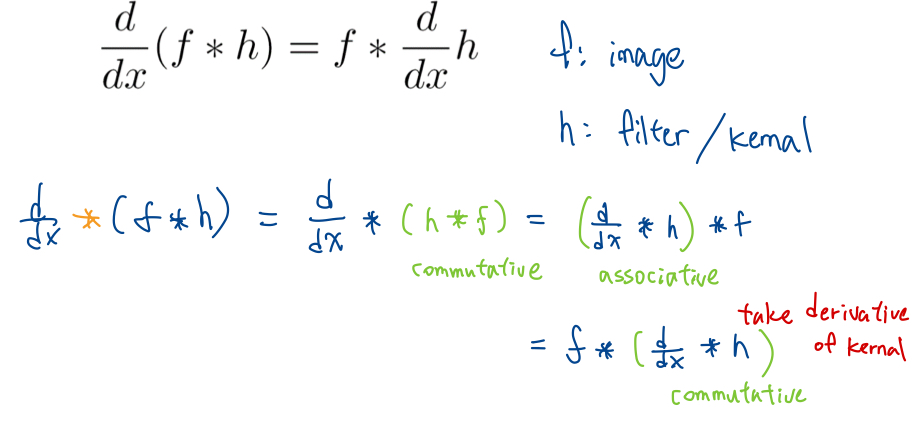 d/dx (f * h) = f * d/dx h
f: image
h: filter / kernal
d/dx * (f * h) = d/dx * (h * f) = (d/dx * h) * f
commutative associative
take derivative
= f * (d/dx * h) of kernal
commutative